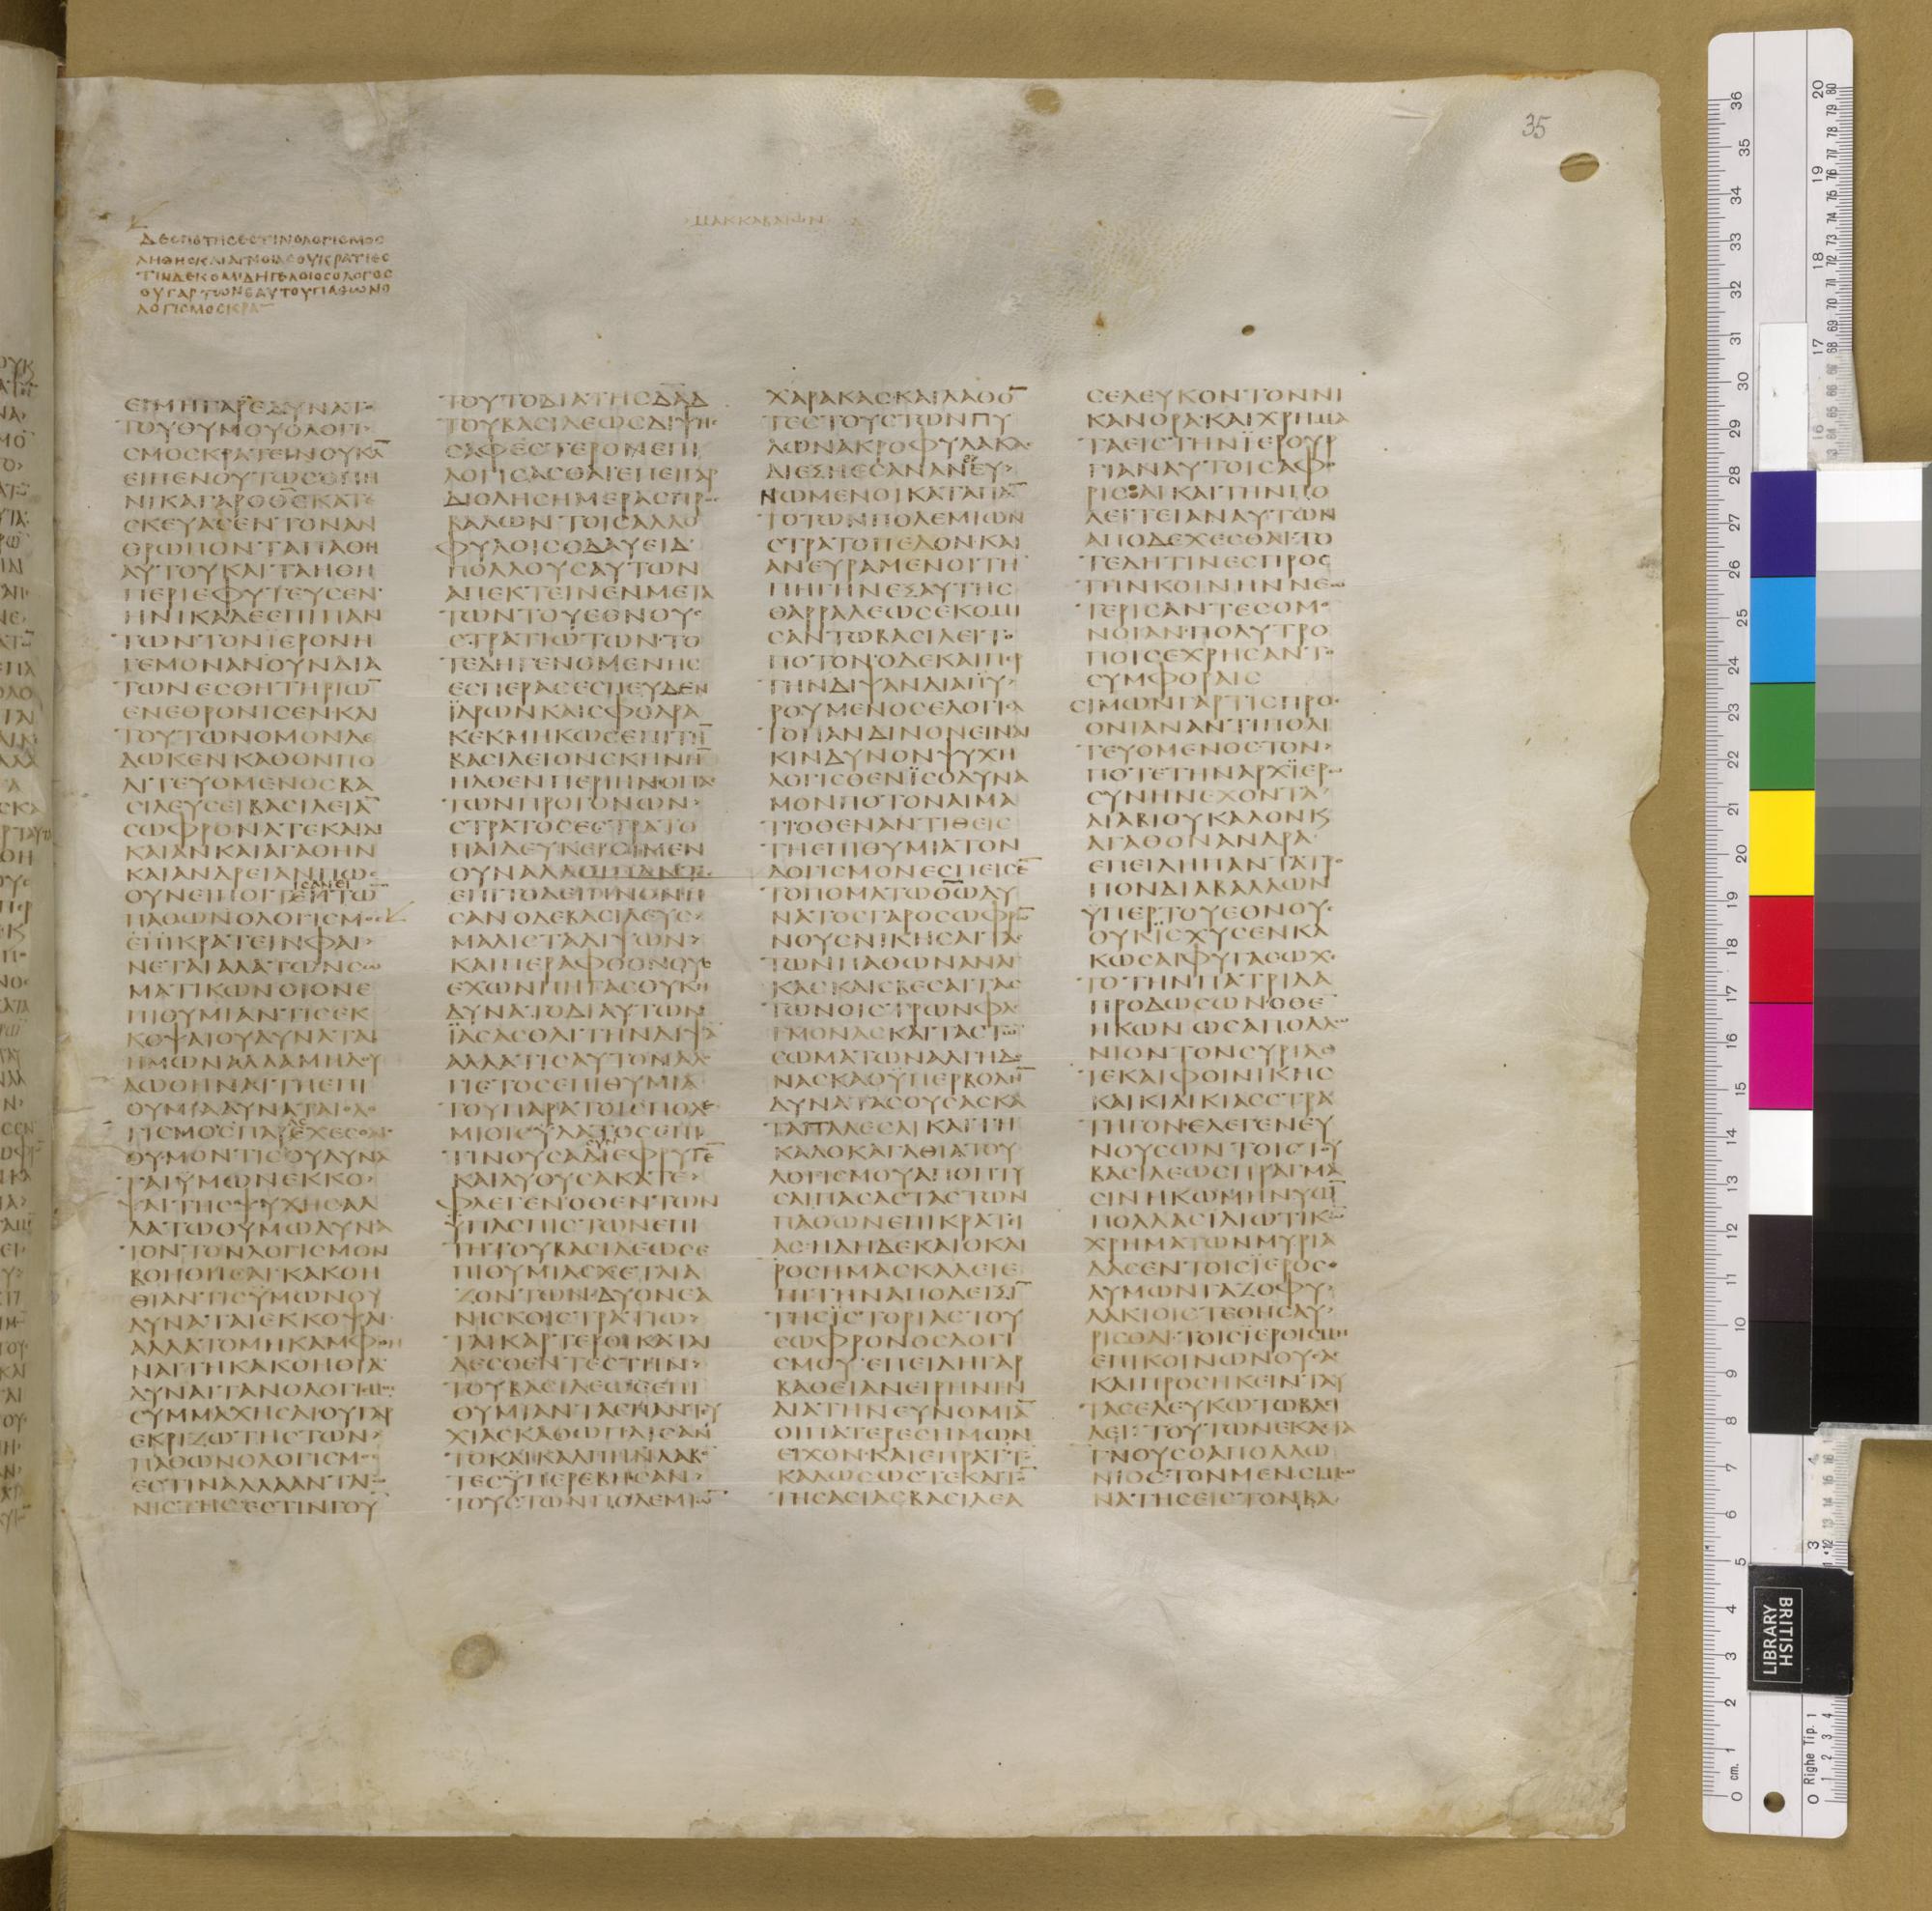 35
ΜΑΚΚΑΒΑΙΩΝ Δ
ΔΕΣΠΟΤΗΣΕΣΤΙΝΟΛΟΓΙΣΜΟΣ
ΛΗΘΗΣΚΑΙΑΓΝΟΙΑΣΟΥΚΡΑΤΙΕΣ
ΤΙΝΔΕΚΟΜΙΔΗΓΕΛΟΙΟΣΟΛΟΓΟΣ
ΟΥΓΑΡΤΩΝΕΑΥΤΟΥΠΑΘΩΝΟ
ΛΟΓΙΣΜΟΣΚΡΑ
ΕΙΜΗΓΑΡΕΔΥΝΑΤΟ
ΤΟΥΘΥΜΟΥΟΛΟΓΙ
ΣΜΟΣΚΡΑΤΕΙΝΟΥΚΑ̅
ΕΙΠΕΝΟΥΤΩΣΟΠΗ
ΝΙΚΑΓΑΡΟΘ̅Σ̅ΚΑΤΕ
ΣΚΕΥΑΣΕΝΤΟΝΑΝ
ΘΡΩΠΟΝΤΑΠΑΘΗ
ΑΥΤΟΥΚΑΙΤΑΗΘΗ
ΠΕΡΙΕΦΥΤΕΥΣΕΝ
ΗΝΙΚΑΔΕΕΠΙΠΑΝ
ΤΩΝΤΟΝΪΕΡΟΝΗ
ΓΕΜΟΝΑΝΟΥΝΔΙΑ
ΤΩΝΕΣΘΗΤΗΡΙΩ̅
ΕΝΕΘΡΟΝΙΣΕΝΚΑΙ
ΤΟΥΤΩΝΟΜΟΝΔΕ
ΔΩΚΕΝΚΑΘΟΝΠΟ
ΛΙΤΕΥΟΜΕΝΟΣΒΑ
ΣΙΛΕΥΣΕΙΒΑΣΙΛΕΙΑ̅
ΣΩΦΡΟΝΑΤΕΚΑΙΔΙ
ΚΑΙΑΝΚΑΙΑΓΑΘΗΝ
ΚΑΙΑΝΔΡΕΙΑΝΠΩΣ
ΙΣΑΝΕΙ
ΟΥΝΕΙΠΟΙΤΕΜΤΩ
ΠΑΘΩΝΟΛΟΓΙΣΜΟΣ
ΕΠΙΚΡΑΤΕΙΝΦΑΙ
ΝΕΤΑΙΑΛΛΑΤΩΝΣΩ
ΜΑΤΙΚΩΝΟΙΟΝΕ
ΠΙΘΥΜΙΑΝΤΙΣΕΚ
ΚΟΨΑΙΟΥΔΥΝΑΤΑΙ
ΗΜΩΝΑΛΛΑΜΗΔΟΥ
ΛΩΘΗΝΑΙΤΗΕΠΙ
ΘΥΜΙΑΔΥΝΑΤΑΙΟΛΟ
ΓΙΣΜΟΣΠΑΡΕΧΕΣΘΑΙ
ΘΥΜΟΝΤΙΣΟΥΔΥΝΑ
ΤΑΙΫΜΩΝΕΚΚΟ
ΨΑΙΤΗΣΨΥΧΗΣΑΛ
ΛΑΤΩΘΥΜΩΔΥΝΑ
ΤΟΝΤΟΝΛΟΓΙΣΜΟΝ
ΒΟΗΘΗΣΑΙΚΑΚΟΗ
ΘΙΑΝΤΙΣΫΜΩΝΟΥ
ΔΥΝΑΤΑΙΕΚΚΟΨΑΙ
ΑΛΛΑΤΟΜΗΚΑΜΦΘΗ
ΝΑΙΤΗΚΑΚΟΗΘΙΑ
ΔΥΝΑΙΤΑΝΟΛΟΓΙΣΜΟΣ
ΣΥΜΜΑΧΗΣΑΙΟΥΓΑΡ
ΕΚΡΙΖΩΤΗΣΤΩΝ
ΠΑΘΩΝΟΛΟΓΙΣΜΟΣ
ΕΣΤΙΝΑΛΛΑΑΝΤΑΓΩ
ΝΙΣΤΗΣΕΣΤΙΝΤΟΥ
ΤΟΥΤΟΔΙΑΤΗΣΔ̅Α̅Δ̅
ΤΟΥΒΑΣΙΛΕΩΣΔΙΨΗΣ
ΣΑΦΕΣΤΕΡΟΝΕΠΙ
ΛΟΓΙΣΑΣΘΑΙΕΠΕΙΓΑΡ
ΔΙΟΛΗΣΗΜΕΡΑΣΠΡΟΣ
ΒΑΛΩΝΤΟΙΣΑΛΛΟ
ΦΥΛΟΙΣΟΔΑΥΕΙΔ
ΠΟΛΛΟΥΣΑΥΤΩΝ
ΑΠΕΚΤΕΙΝΕΝΜΕΤΑ
ΤΩΝΤΟΥΕΘΝΟΥΣ
ΣΤΡΑΤΙΩΤΩΝΤΟ
ΤΕΔΗΓΕΝΟΜΕΝΗΣ
ΕΣΠΕΡΑΣΕΣΠΕΥΔΕΝ
ΪΔΡΩΝΚΑΙΣΦΟΔΡΑ
ΚΕΚΜΗΚΩΣΕΠΙΤΗ̅
ΒΑΣΙΛΕΙΟΝΣΚΗΝΗ̅
ΗΛΘΕΝΠΕΡΙΗΝΟΠΑΣ
ΤΩΝΠΡΟΓΟΝΩΝ
ΣΤΡΑΤΟΣΕΣΤΡΑΤΟ
ΠΑΙΔΕΥΚΕΡΟΙΜΕΝ
ΟΥΝΑΛΛΟΙΠΑΝΤΕΣ
ΕΠΙΤΟΔΕΙΠΝΟΝΗ
ΣΑΝΟΔΕΒΑΣΙΛΕΥΣ
ΜΑΛΙΣΤΑΔΙΨΩΝ
ΚΑΙΠΕΡΑΦΘΟΝΟΥΣ
ΕΧΩΝΠΗΓΑΣΟΥΚΗ
ΔΥΝΑΤΟΔΙΑΥΤΩΝ
ΪΑΣΑΣΘΑΙΤΗΝΔΙΨΑ̅
ΑΛΛΑΤΙΣΑΥΤΟΝΑΛΟ
ΓΙΣΤΟΣΕΠΙΘΥΜΙΑ
ΤΟΥΠΑΡΑΤΟΙΣΠΟΛΕ
ΜΙΟΙΣΥΔΑΤΟΣΕΠΙ
ΤΙΝΟΥΣΑΣΥΝΕΦΡΥΓΕ̅
ΚΑΙΛΥΟΥΣΑΚΑΤΕ
ΦΛΕΓΕΝΟΘΕΝΤΩΝ
ΫΠΑΣΠΙΣΤΩΝΕΠΙ
ΤΗΤΟΥΒΑΣΙΛΕΩΣΕ
ΠΙΘΥΜΙΑΣΧΕΤΛΙΑ
ΖΟΝΤΩΝΔΥΟΝΕΑ
ΝΙΣΚΟΙΣΤΡΑΤΙΩ
ΤΑΙΚΑΡΤΕΡΟΙΚΑΤΑΙ
ΔΕΣΘΕΝΤΕΣΤΗΝ
ΤΟΥΒΑΣΙΛΕΩΣΕΠΙ
ΘΥΜΙΑΝΤΑΣΠΑΝΤΕΥ
ΧΙΑΣΚΑΘΩΠΛΙΣΑΝ
ΤΟΚΑΙΚΑΛΠΗΝΛΑΒΟ̅
ΤΕΣΫΠΕΡΕΒΗΣΑΝ
ΤΟΥΣΤΩΝΠΟΛΕΜΙΩ̅
ΧΑΡΑΚΑΣΚΑΙΛΑΘΟ̅
ΤΕΣΤΟΥΣΤΩΝΠΥ
ΛΩΝΑΚΡΟΦΥΛΑΚΑΣ
ΔΙΕΞΗΕΣΑΝΑΝΕΥΡ
ΝΩΜΕΝΟΙΚΑΤΑΠΑ̅
ΤΟΤΩΝΠΟΛΕΜΙΩΝ
ΣΤΡΑΤΟΠΕΔΟΝΚΑΙ
ΑΝΕΥΡΑΜΕΝΟΙΤΗ
ΠΗΓΗΝΕΞΑΥΤΗΣ
ΘΑΡΡΑΛΕΩΣΕΚΟΜΙ
ΣΑΝΤΩΒΑΣΙΛΕΙΤΟ
ΠΟΤΟΝΟΔΕΚΑΙΠΕΡ
ΤΗΝΔΙΨΑΝΔΙΑΠΥ
ΡΟΥΜΕΝΟΣΕΛΟΓΙΣΑ
ΤΟΠΑΝΔΙΝΟΝΕΙΝΑΙ
ΚΙΝΔΥΝΟΝΨΥΧΗ
ΛΟΓΙΣΘΕΝΪΣΟΔΥΝΑ
ΜΟΝΠΟΤΟΝΑΙΜΑ
ΤΙΟΘΕΝΑΝΤΙΘΕΙΣ
ΤΗΕΠΙΘΥΜΙΑΤΟΝ
ΛΟΓΙΣΜΟΝΕΣΠΕΙΣΕ̅
ΤΟΠΟΜΑΤΩΘ̅Ω̅ΔΥ
ΝΑΤΟΣΓΑΡΟΣΩΦΡΩ̅
ΝΟΥΣΝΙΚΗΣΑΙΤΑΣ
ΤΩΝΠΑΘΩΝΑΝΑΓ
ΚΑΣΚΑΙΣΒΕΣΑΙΤΑΣ
ΤΩΝΟΙΣΤΡΩΝΦΛΕ
ΓΜΟΝΑΣΚΑΙΤΑΣΤΩ̅
ΣΩΜΑΤΩΝΑΛΓΗΔΟ
ΝΑΣΚΑΘΫΠΕΡΒΟΛΗ̅
ΔΥΝΑΤΑΣΟΥΣΑΣΚΑ
ΤΑΠΑΛΕΣΑΙΚΑΙΤΗ
ΚΑΛΟΚΑΓΑΘΙΑΤΟΥ
ΛΟΓΙΣΜΟΥΑΠΟΠΤΥ
ΣΑΙΠΑΣΑΣΤΑΣΤΩΝ
ΠΑΘΩΝΕΠΙΚΡΑΤΙ
ΑΣΗΔΗΔΕΚΑΙΟΚΑΙ
ΡΟΣΗΜΑΣΚΑΛΕΙΕ
ΠΙΤΗΝΑΠΟΔΕΙΞΙ̅
ΤΗΣΪΣΤΟΡΙΑΣΤΟΥ
ΣΩΦΡΟΝΟΣΛΟΓΙ
ΣΜΟΥΕΠΕΙΔΗΓΑΡ
ΒΑΘΕΙΑΝΕΙΡΗΝΗΝ
ΔΙΑΤΗΝΕΥΝΟΜΙΑ̅
ΟΙΠΑΤΕΡΕΣΗΜΩΝ
ΕΙΧΟΝΚΑΙΕΠΡΑΤΤΟ̅
ΚΑΛΩΣΩΣΤΕΚΑΙΤΟ̅
ΤΗΣΑΣΙΑΣΒΑΣΙΛΕΑ
ΣΕΛΕΥΚΟΝΤΟΝΝΙ
ΚΑΝΟΡΑΚΑΙΧΡΗΜΑ
ΤΑΕΙΣΤΗΝΪΕΡΟΥΡ
ΓΙΑΝΑΥΤΟΙΣΑΦΟ
ΡΙΣΑΙΚΑΙΤΗΝΠΟ
ΛΕΙΤΕΙΑΝΑΥΤΩΝ
ΑΠΟΔΕΧΕΣΘΑΙΤΟ
ΤΕΔΗΤΙΝΕΣΠΡΟΣ
ΤΗΝΚΟΙΝΗΝΝΕΩ
ΤΕΡΙΣΑΝΤΕΣΟΜΟ
ΝΟΙΑΝΠΟΛΥΤΡΟ
ΠΟΙΣΕΧΡΗΣΑΝΤΟ
ΣΥΜΦΟΡΑΙΣ
ΣΙΜΩΝΓΑΡΤΙΣΠΡΟΣ
ΟΝΙΑΝΑΝΤΙΠΟΛΙ
ΤΕΥΟΜΕΝΟΣΤΟΝ
ΠΟΤΕΤΗΝΑΡΧΪΕΡΩ
ΣΥΝΗΝΕΧΟΝΤΑ
ΔΙΑΒΙΟΥΚΑΛΟΝΚ
ΑΓΑΘΟΝΑΝΔΡΑ
ΕΠΕΙΔΗΠΑΝΤΑΤΡΟ
ΠΟΝΔΙΑΒΑΛΛΩΝ
ΫΠΕΡΤΟΥΕΘΝΟΥΣ
ΟΥΚΪΣΧΥΣΕΝΚΑ
ΚΩΣΑΙΦΥΓΑΣΩΧΕ
ΤΟΤΗΝΠΑΤΡΙΔΑ
ΠΡΟΔΩΣΩΝΟΘΕ̅
ΗΚΩΝΩΣΑΠΟΛΛΩ
ΝΙΟΝΤΟΝΣΥΡΙΑΣ
ΤΕΚΑΙΦΟΙΝΙΚΗΣ
ΚΑΙΚΙΛΙΚΙΑΣΣΤΡΑ
ΤΗΓΟΝΕΛΕΓΕΝΕΥ
ΝΟΥΣΩΝΤΟΙΣΤΟΥ
ΒΑΣΙΛΕΩΣΠΡΑΓΜΑ
ΣΙΝΗΚΩΜΗΝΥΩ̅
ΠΟΛΛΑΣΙΔΙΩΤΙΚΩ̅
ΧΡΗΜΑΤΩΝΜΥΡΙΑ
ΔΑΣΕΝΤΟΙΣΪΕΡΟΣΟ
ΛΥΜΩΝΓΑΖΟΦΥ
ΛΑΚΙΟΙΣΤΕΘΗΣΑΥ
ΡΙΣΘΑΙΤΟΙΣΪΕΡΟΙΣΜΗ
ΕΠΙΚΟΙΝΩΝΟΥΣΑ
ΚΑΙΠΡΟΣΗΚΕΙΝΤΑΥ
ΤΑΣΕΛΕΥΚΩΤΩΒΑΣΙ
ΛΕΙΤΟΥΤΩΝΕΚΑΣΤΑ
ΓΝΟΥΣΟΑΠΟΛΛΩ
ΝΙΟΣΤΟΝΜΕΝΣΙΜΩ
ΝΑΤΗΣΕΙΣΤΟΝΒΑ
BRITISH
LIBRARY
Righe Tip. 1
cm.